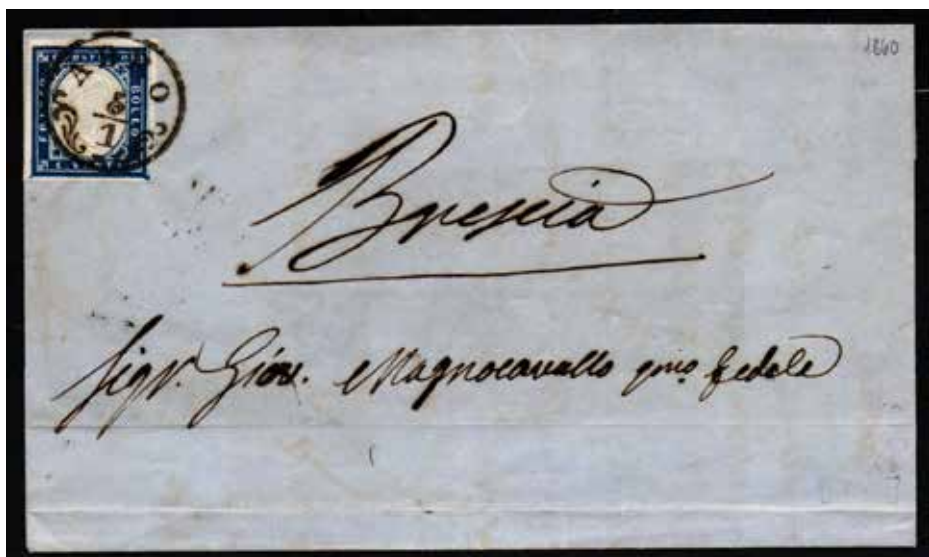 1860
BOLLO
8
1
Brescia
Sigr. Giov. Magnocavallo qm.o fedele